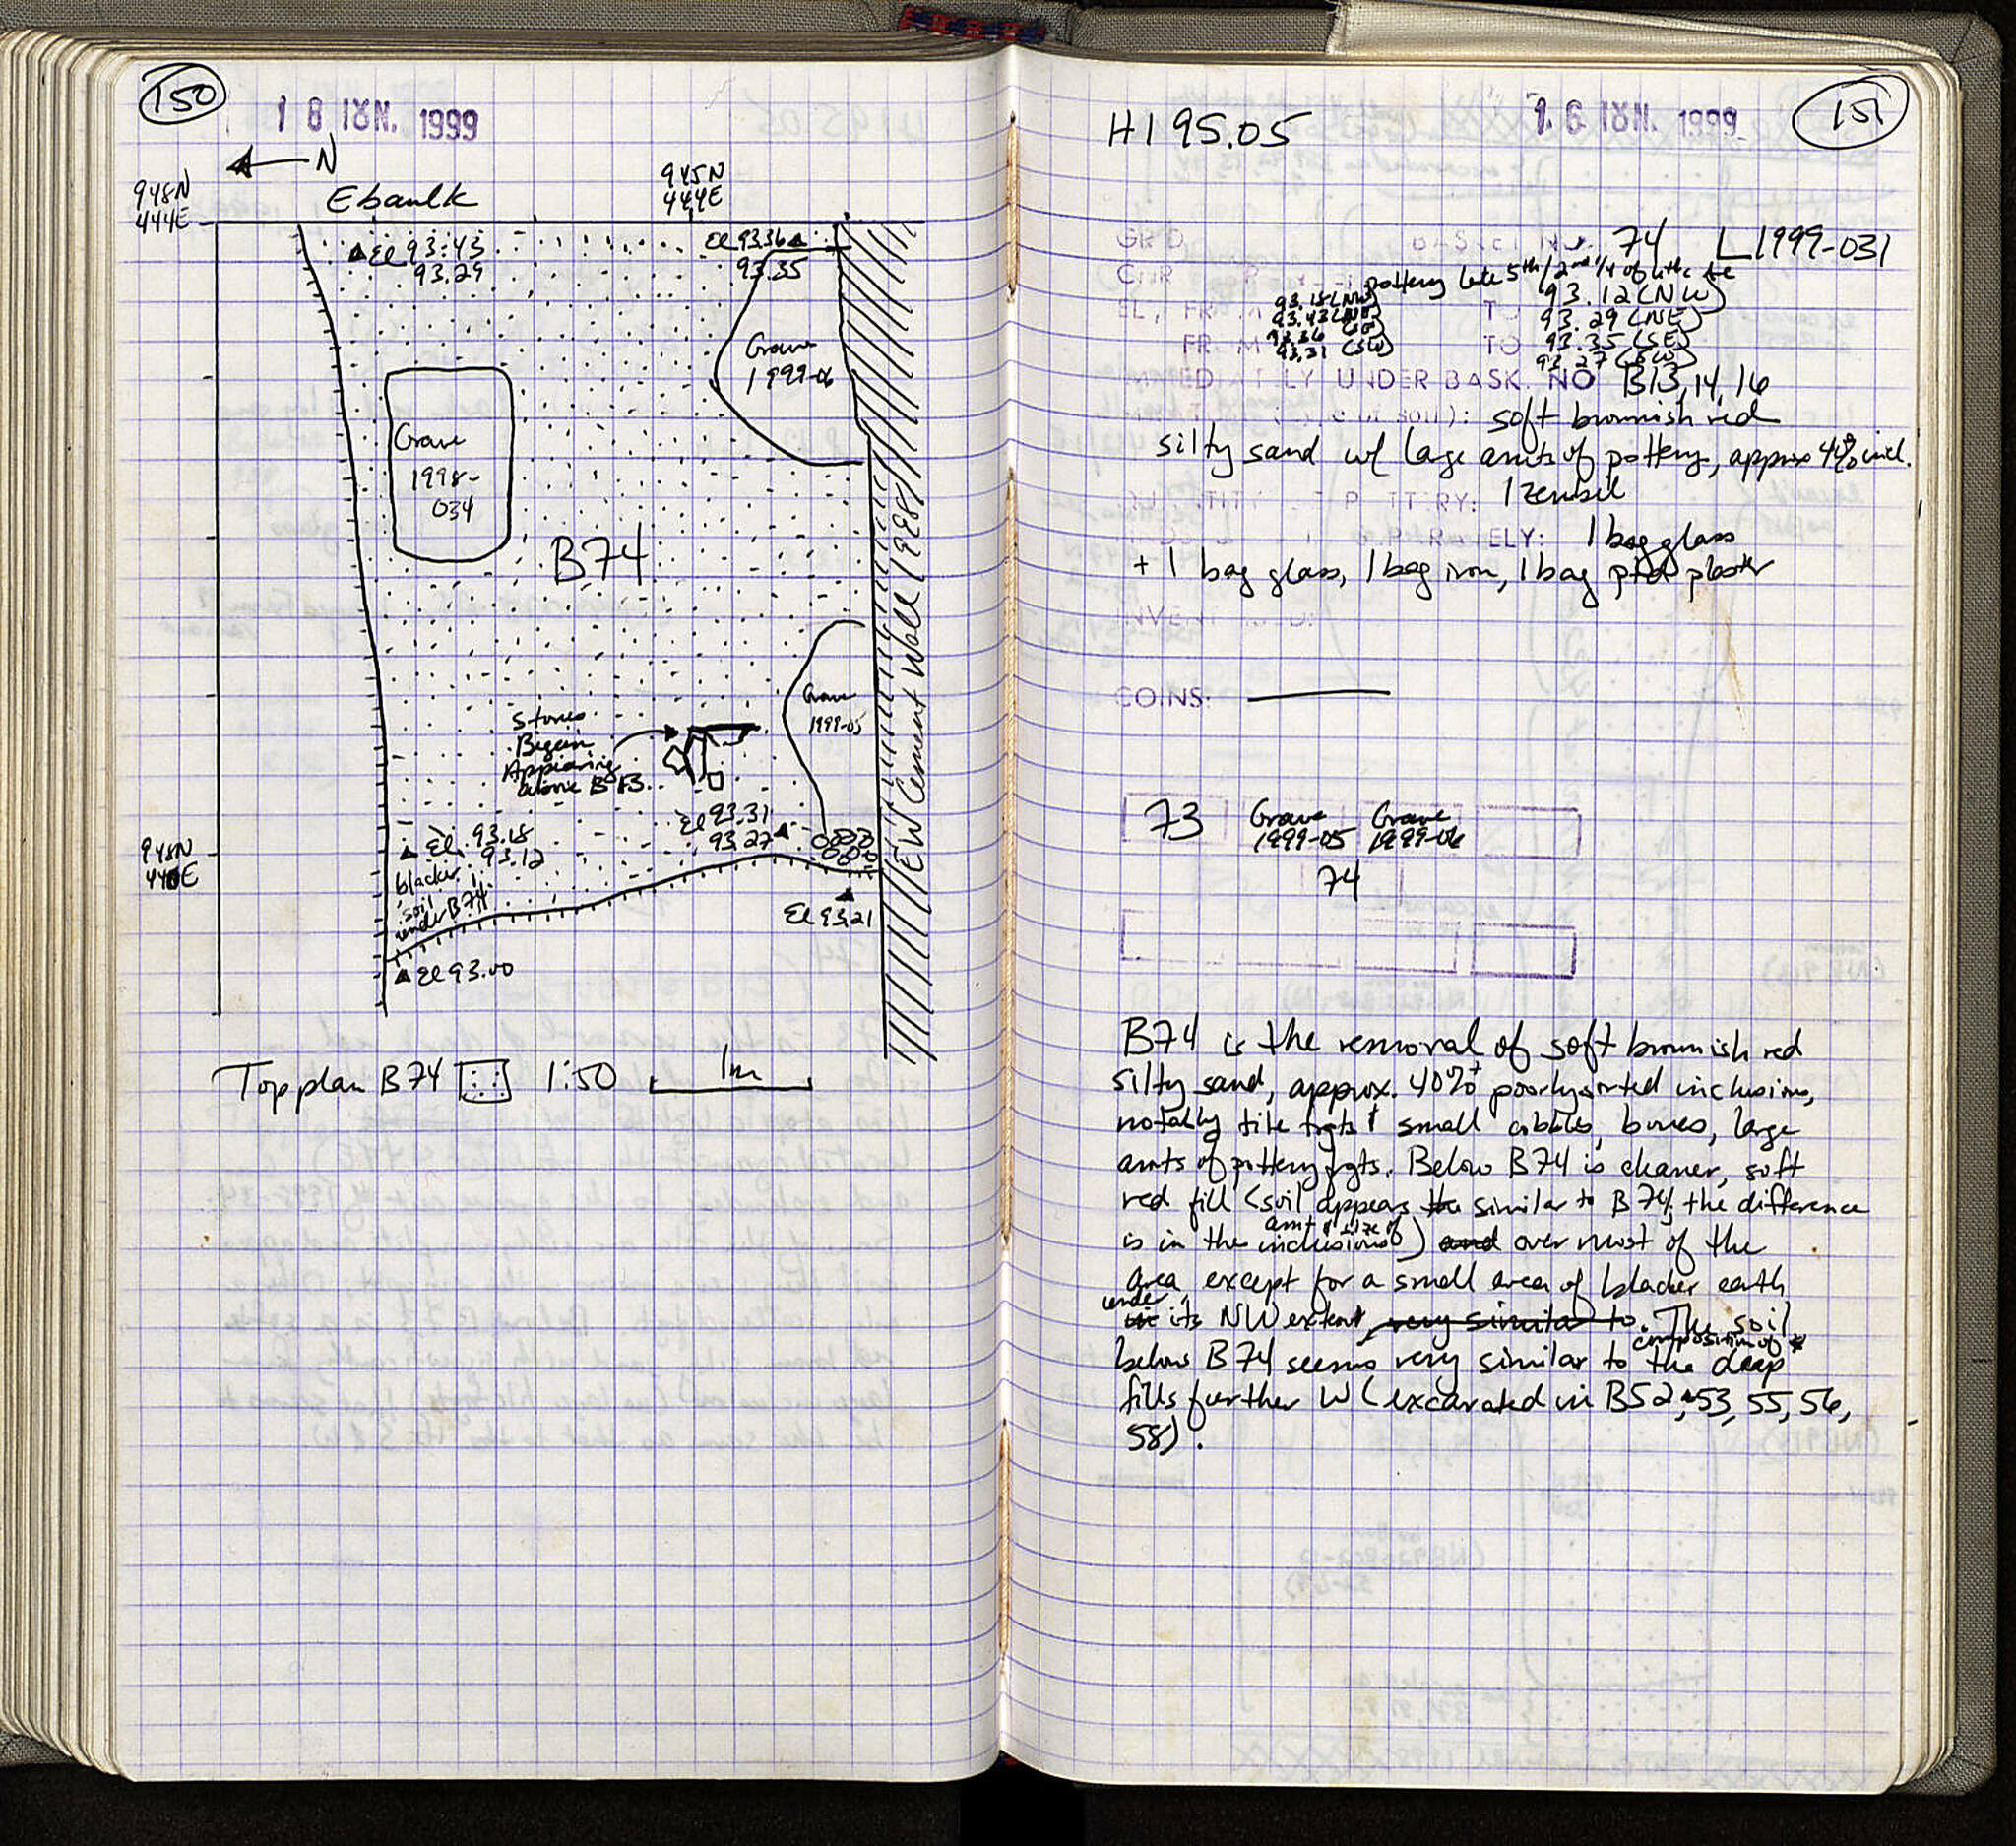 150
18 ΙΟΥΝ. 1999
N
948N
444E
E baulk
945N
444E
El 93.43
93.29
El 93.36
93.35
Grave
1999-06
Grave
1998-
034
B74
EW Cement Wall (1938)
Grave
1999-05
Stones
Began
Appearing
above B13
El 93.31
93.27
El 93.18
93.12
948N
440E
blacker
soil
under B74
El 93.21
El 93.00
Top plan B74 1:50 1m
151
16 ΙΟΥΝ. 1999
H1 95.05
GRID BASKET NO. 74 L1999-031
pottery late 5th/2nd 1/4 of 4th c
EL, FROM 93.18 (NW) TO 93.12 (NW)
93.43 (NE) 93.29 (NE)
FROM 93.36 (SE) TO 93.35 (SE)
93.31 (SW) 93.27 (SW)
IMMEDIATELY UNDER BASK. NO B13, 14, 16
soil): soft brownish red
silty sand w/ large amts of pottery, approx 40% incl.
QUANTITY OF POTTERY: 1 zembil
1 bag glass
+ 1 bag glass, 1 bag iron, 1 bag ptd plaster
INVENTORIED:
COINS: —
73 Grave 1999-05 Grave 1999-06
74
B74 is the removal of soft brownish red
silty sand, approx. 40%+ poorly sorted inclusions,
notably tile frgts + small cobbles, bones, large
amts of pottery frgts. Below B74 is cleaner, soft
red fill (soil appears the similar to B74, the difference
is in the amt & size of inclusions) and over most of the
area, except for a small area of blacker earth
under its NW extent, very similar to. The soil
below B74 seems very similar to the composition of deep
fills further W (excavated in B52, 53, 55, 56,
58).